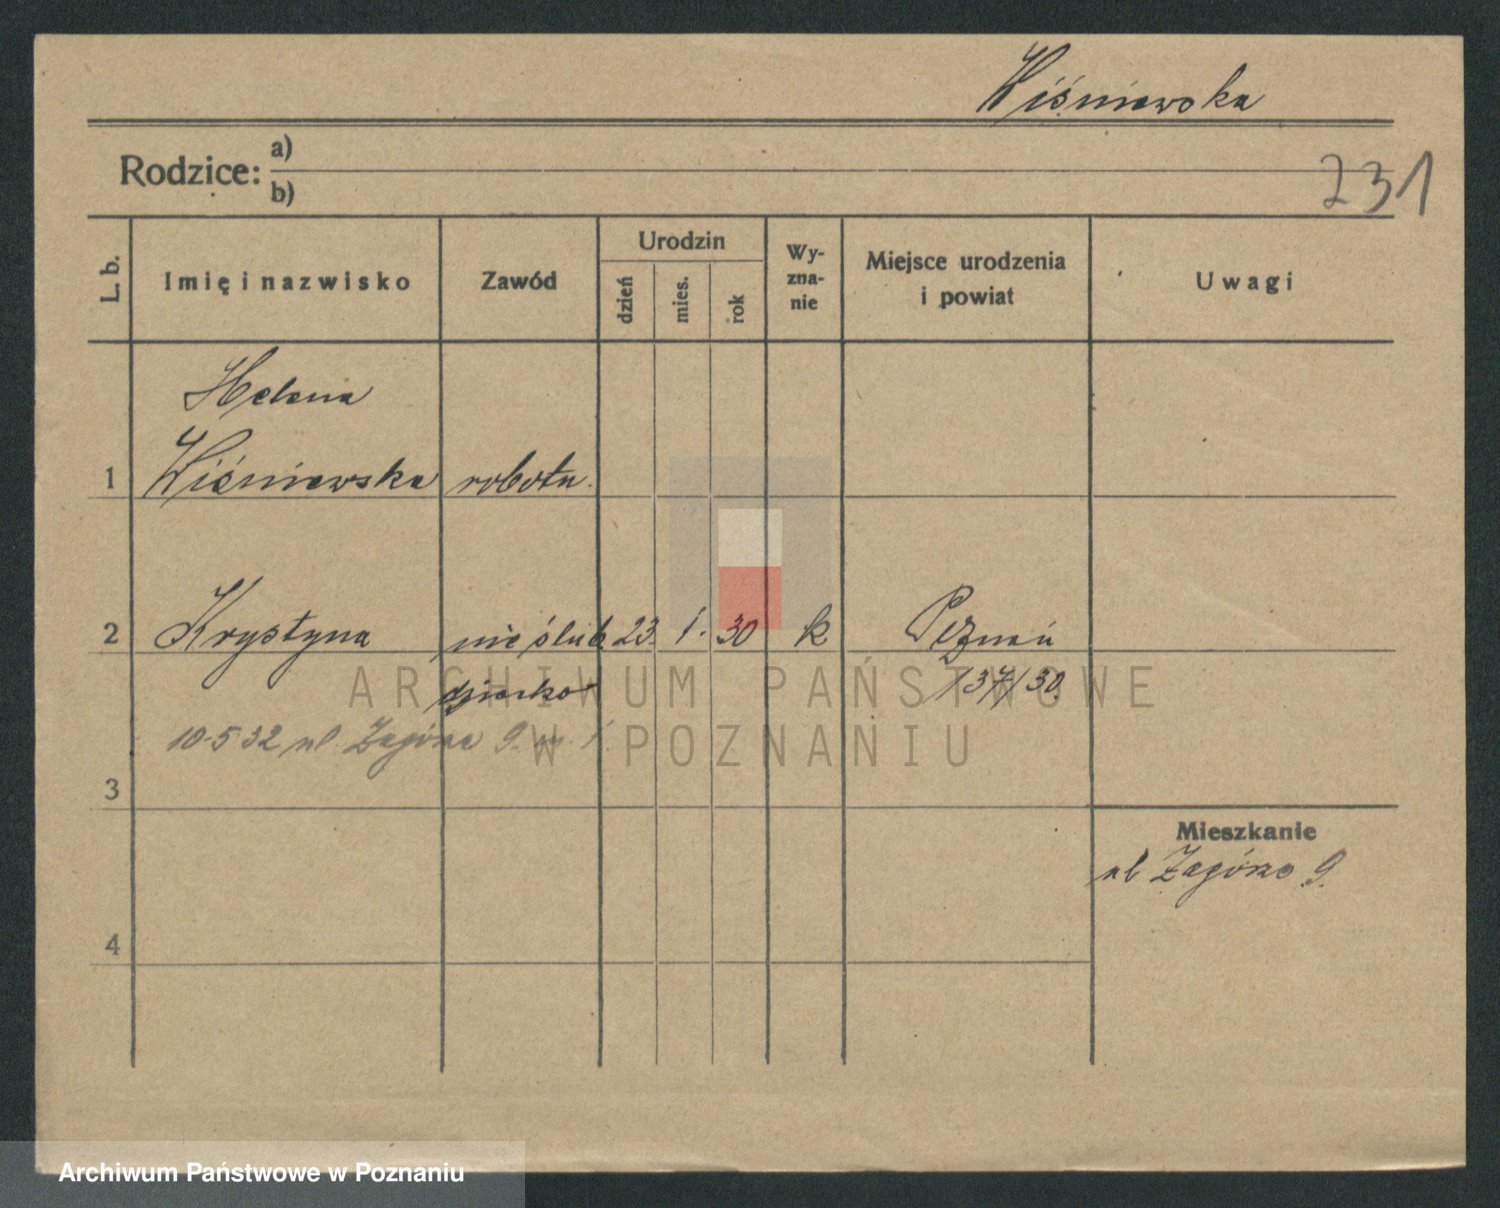 Wiśniewska
Rodzice: a)
b)
231
L. b.
Imię i nazwisko
Zawód
Urodzin
dzień
mies.
rok
Wy-
zna-
nie
Miejsce urodzenia
i powiat
Uwagi
Helena
1 Wiśniewska robotn.
2 Krystyna nieślub 23. 1. 30 k Poznań
dziecko 137/30.
10-5 32 ul. Zagórze 9.
3
Mieszkanie
ul Zagórze 9.
4
ARCHIWUM PAŃSTWOWE
W POZNANIU
Archiwum Państwowe w Poznaniu